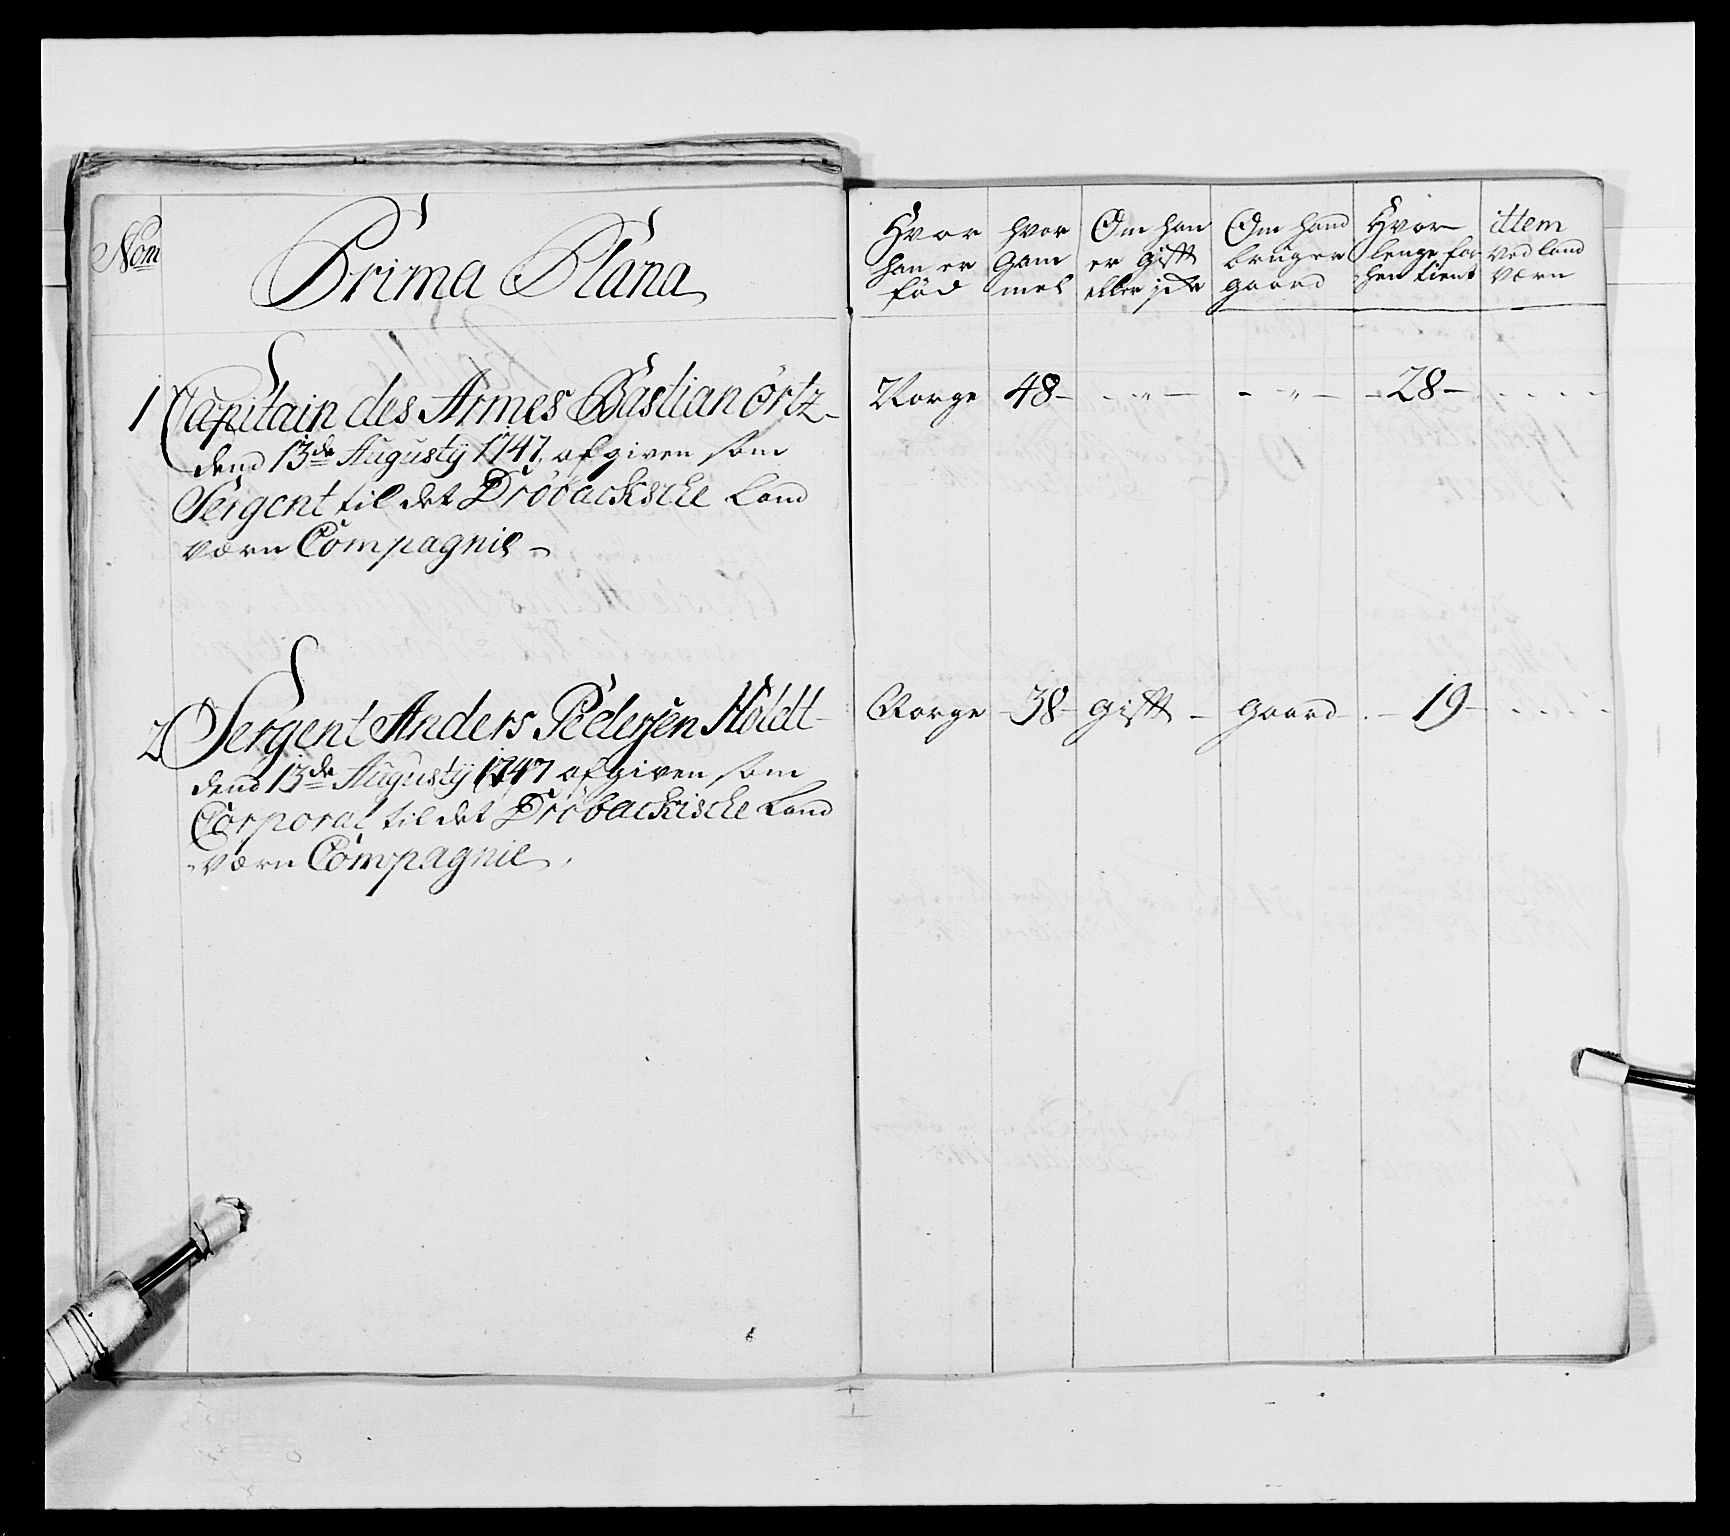 Nom
Prima Plana
Hvor han er fød
hvor gam mel
Om han er gifft eller icke
Om hand bruger gaard
Hvor lenge for hen tient
ittem ved land værn
1 Capitain des Armes Bastian örtz - Norge 48 - - „ - - „ - - 28 - . . . .
dend 13de Augusty 1747 afgiven som
Sergent til det Dröbackische Land
værn Compagnie -
2 Sergent Anders Pedersen Holdt - Norge - 38 - gifft - gaard . - 19 - . . . .
dend 13de Augusty 1747 afgiven som
Corporal til det Dröbackische Land
værn Compagnie .